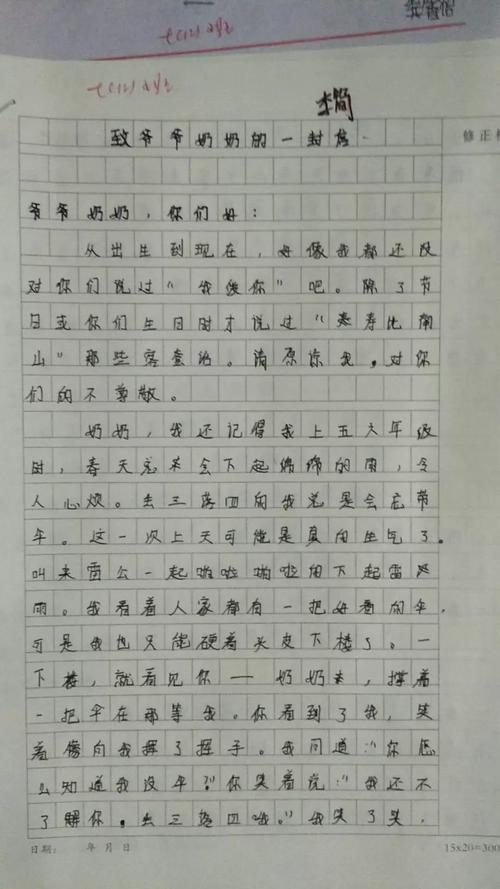 七(12) 刘
七(12) 刘
李简
致爷爷奶奶的一封信
修正
爷爷奶奶，你们好：
从出生到现在，好像我都还没
对你们说过“我爱你”吧。除了节
日或你们生日时才说过“寿比南
山”那些客套话。请原谅我，对你
们的不尊敬。
奶奶，我还记得我上五六年级
时，春天总来会下起绵绵的雨，令
人心烦。丢三落四的我总是会忘带
伞。这一次上天可能是真的生气了。
叫来雷公一起啦啦啪啦的下起雷阵
雨。我看着人家都有一把好看的伞，
可是我也只能硬着头皮下楼了。一
下楼，就看见你——奶奶，撑着
一把伞在那等我。你看到了我，笑
着像向我挥了挥手。我问道：“你怎
么知道我没伞？”你笑着说：“我还不
了解你。丢三落四哦。”我笑了笑，
日期： 年 月 日
15x20=300